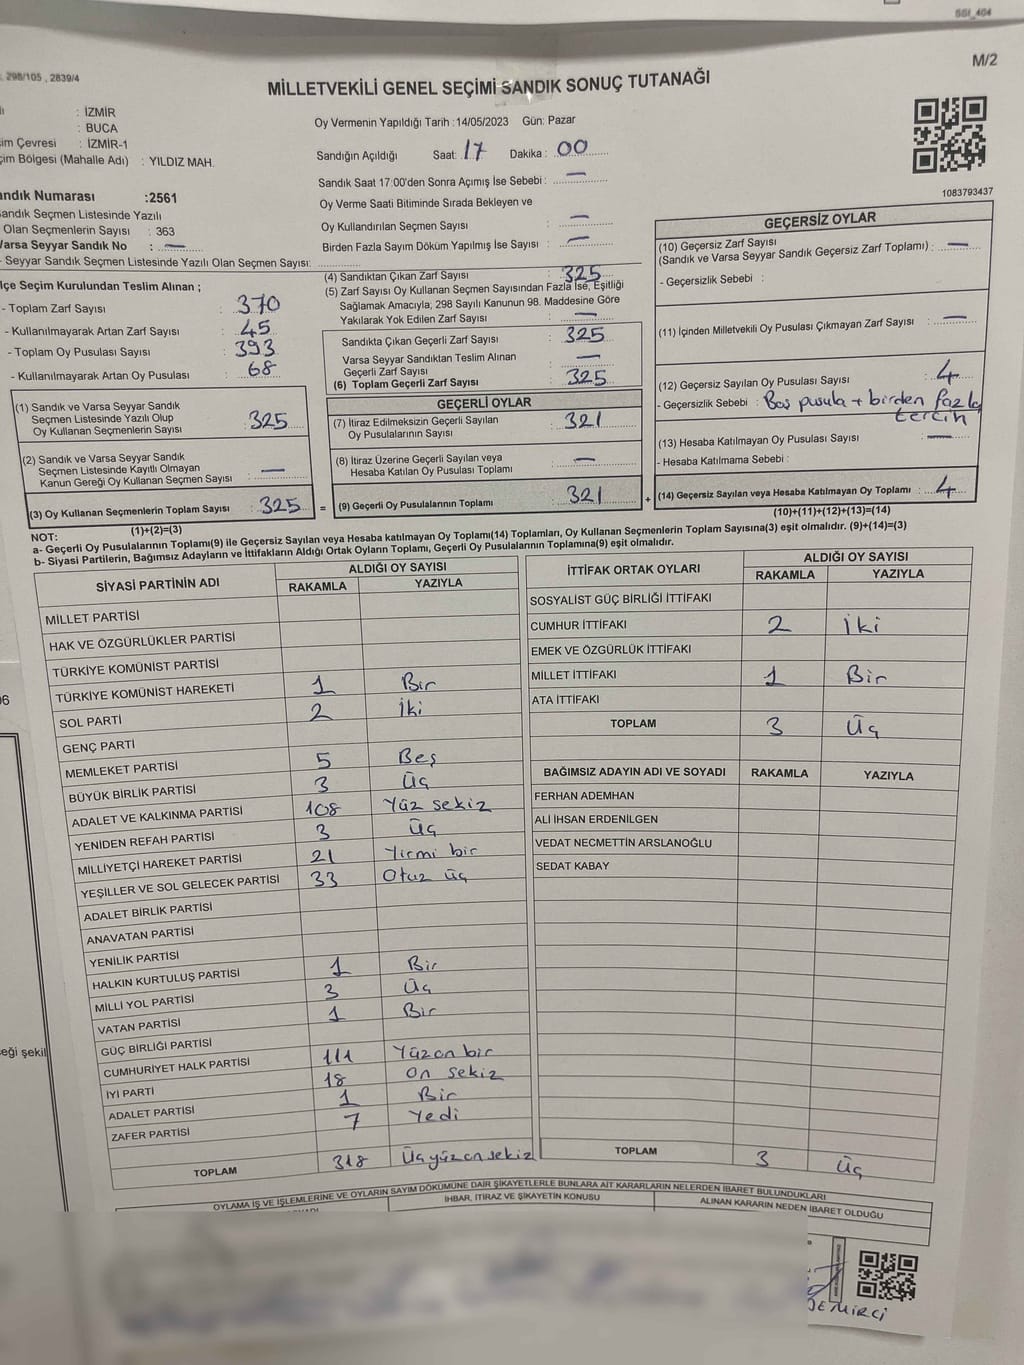 SSI_404
M/2
298/105 , 2839/4
MİLLETVEKİLİ GENEL SEÇİMİ SANDIK SONUÇ TUTANAĞI
: İZMİR
: BUCA
im Çevresi : İZMİR-1
çim Bölgesi (Mahalle Adı) : YILDIZ MAH.
Oy Vermenin Yapıldığı Tarih :14/05/2023 Gün: Pazar
Sandığın Açıldığı Saat: 17 Dakika : 00
Sandık Saat 17:00'den Sonra Açımış İse Sebebi : —
Oy Verme Saati Bitiminde Sırada Bekleyen ve
Oy Kullandırılan Seçmen Sayısı : —
Birden Fazla Sayım Döküm Yapılmış İse Sayısı : —
1083793437
andık Numarası :2561
andık Seçmen Listesinde Yazılı
Olan Seçmenlerin Sayısı : 363
Varsa Seyyar Sandık No : —
- Seyyar Sandık Seçmen Listesinde Yazılı Olan Seçmen Sayısı:
lçe Seçim Kurulundan Teslim Alınan ;
- Toplam Zarf Sayısı : 370
- Kullanılmayarak Artan Zarf Sayısı : 45
- Toplam Oy Pusulası Sayısı : 393
- Kullanılmayarak Artan Oy Pusulası : 68
(1) Sandık ve Varsa Seyyar Sandık
Seçmen Listesinde Yazılı Olup
Oy Kullanan Seçmenlerin Sayısı : 325
(2) Sandık ve Varsa Seyyar Sandık
Seçmen Listesinde Kayıtlı Olmayan
Kanun Gereği Oy Kullanan Seçmen Sayısı : —
(3) Oy Kullanan Seçmenlerin Toplam Sayısı : 325
(1)+(2)=(3)
(4) Sandıktan Çıkan Zarf Sayısı : 325
(5) Zarf Sayısı Oy Kullanan Seçmen Sayısından Fazla İse, Eşitliği
Sağlamak Amacıyla; 298 Sayılı Kanunun 98. Maddesine Göre
Yakılarak Yok Edilen Zarf Sayısı : —
Sandıkta Çıkan Geçerli Zarf Sayısı : 325
Varsa Seyyar Sandıktan Teslim Alınan
Geçerli Zarf Sayısı : —
(6) Toplam Geçerli Zarf Sayısı : 325
GEÇERLİ OYLAR
(7) İtiraz Edilmeksizin Geçerli Sayılan
Oy Pusulalarının Sayısı : 321
(8) İtiraz Üzerine Geçerli Sayılan veya
Hesaba Katılan Oy Pusulası Toplamı : —
= (9) Geçerli Oy Pusulalarının Toplamı : 321 +
GEÇERSİZ OYLAR
(10) Geçersiz Zarf Sayısı
(Sandık ve Varsa Seyyar Sandık Geçersiz Zarf Toplamı) : —
- Geçersizlik Sebebi :
(11) İçinden Milletvekili Oy Pusulası Çıkmayan Zarf Sayısı : —
(12) Geçersiz Sayılan Oy Pusulası Sayısı : 4
- Geçersizlik Sebebi : Boş pusula + birden fazla
tercih
(13) Hesaba Katılmayan Oy Pusulası Sayısı : —
- Hesaba Katılmama Sebebi :
(14) Geçersiz Sayılan veya Hesaba Katılmayan Oy Toplamı : 4
(10)+(11)+(12)+(13)=(14)
NOT:
a- Geçerli Oy Pusulalarının Toplamı(9) ile Geçersiz Sayılan veya Hesaba katılmayan Oy Toplamı(14) Toplamları, Oy Kullanan Seçmenlerin Toplam Sayısına(3) eşit olmalıdır. (9)+(14)=(3)
b- Siyasi Partilerin, Bağımsız Adayların ve İttifakların Aldığı Ortak Oyların Toplamı, Geçerli Oy Pusulalarının Toplamına(9) eşit olmalıdır.
SİYASİ PARTİNİN ADI ALDIĞI OY SAYISI
RAKAMLA YAZIYLA
MİLLET PARTİSİ
HAK VE ÖZGÜRLÜKLER PARTİSİ
TÜRKİYE KOMÜNİST PARTİSİ
TÜRKİYE KOMÜNİST HAREKETİ 1 Bir
SOL PARTİ 2 İki
GENÇ PARTİ
MEMLEKET PARTİSİ 5 Beş
BÜYÜK BİRLİK PARTİSİ 3 Üç
ADALET VE KALKINMA PARTİSİ 108 Yüz sekiz
YENİDEN REFAH PARTİSİ 3 Üç
MİLLİYETÇİ HAREKET PARTİSİ 21 Yirmi bir
YEŞİLLER VE SOL GELECEK PARTİSİ 33 Otuz üç
ADALET BİRLİK PARTİSİ
ANAVATAN PARTİSİ
YENİLİK PARTİSİ
HALKIN KURTULUŞ PARTİSİ 1 Bir
MİLLİ YOL PARTİSİ 3 Üç
VATAN PARTİSİ 1 Bir
GÜÇ BİRLİĞİ PARTİSİ
CUMHURİYET HALK PARTİSİ 111 Yüzon bir
İYİ PARTİ 18 On sekiz
ADALET PARTİSİ 1 Bir
ZAFER PARTİSİ 7 Yedi
TOPLAM 318 Üçyüzonsekiz
İTTİFAK ORTAK OYLARI ALDIĞI OY SAYISI
RAKAMLA YAZIYLA
SOSYALİST GÜÇ BİRLİĞİ İTTİFAKI
CUMHUR İTTİFAKI 2 İki
EMEK VE ÖZGÜRLÜK İTTİFAKI
MİLLET İTTİFAKI 1 Bir
ATA İTTİFAKI
TOPLAM 3 Üç
BAĞIMSIZ ADAYIN ADI VE SOYADI RAKAMLA YAZIYLA
FERHAN ADEMHAN
ALİ İHSAN ERDENİLGEN
VEDAT NECMETTİN ARSLANOĞLU
SEDAT KABAY
TOPLAM 3 Üç
OYLAMA İŞ VE İŞLEMLERİNE VE OYLARIN SAYIM DÖKÜMÜNE DAİR ŞİKAYETLERLE BUNLARA AİT KARARLARIN NELERDEN İBARET BULUNDUKLARI
İHBAR, İTİRAZ VE ŞİKAYETİN KONUSU ALINAN KARARIN NEDEN İBARET OLDUĞU
eği şekil
DEMİRCİ